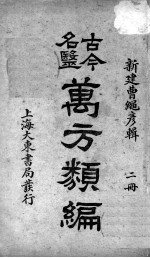 新建曹繩彥輯　二冊
古今
名醫
萬方類編
上海大東書局發行